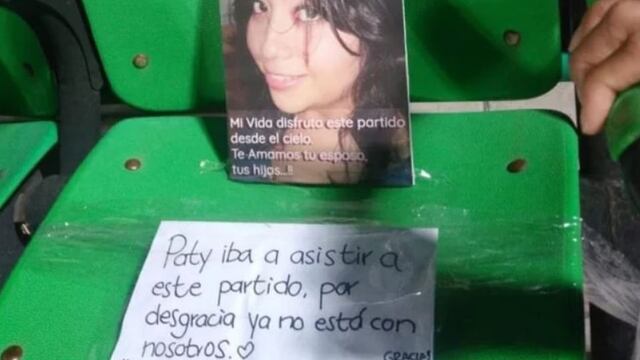 Mi Vida disfruta este partido
desde el cielo.
Te Amamos tu esposo,
tus hijos...!!
Paty iba a asistir a
este partido, por
desgracia ya no está con
nosotros. ♡
GRACIAS